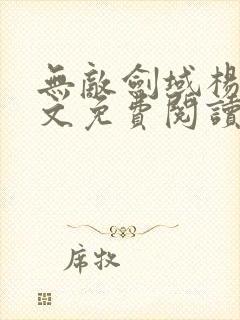 無敵劍域楊
文免費閱讀
席牧